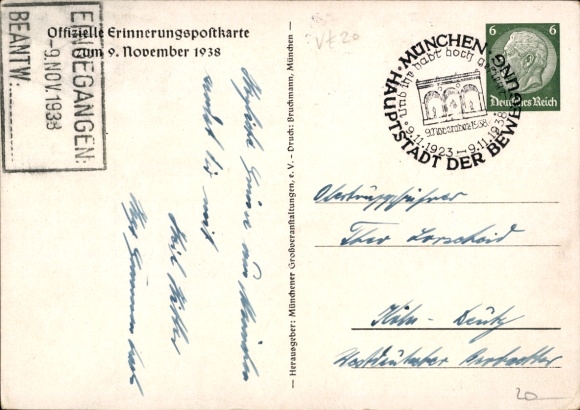 Offizielle Erinnerungspostkarte
zum 9. November 1938
EINGEGANGEN:
-9. NOV. 1938
BEANTW.:
Herzliche Grüsse aus München
sendet dir mit
Heil Hitler
— Herausgeber: Münchener Großveranstaltungen, e. V. – Druck: Bruckmann, München —
VF20
MÜNCHEN·
·HAUPTSTADT DER BEWEGUNG·
Und ihr habt doch gesiegt
9. November 1938
9.11.1923 — 9.11.1938
6 6
Deutsches Reich
Obertruppführer
Theo Lorscheid
Köln - Deutz
Westdeutscher Beobachter
20